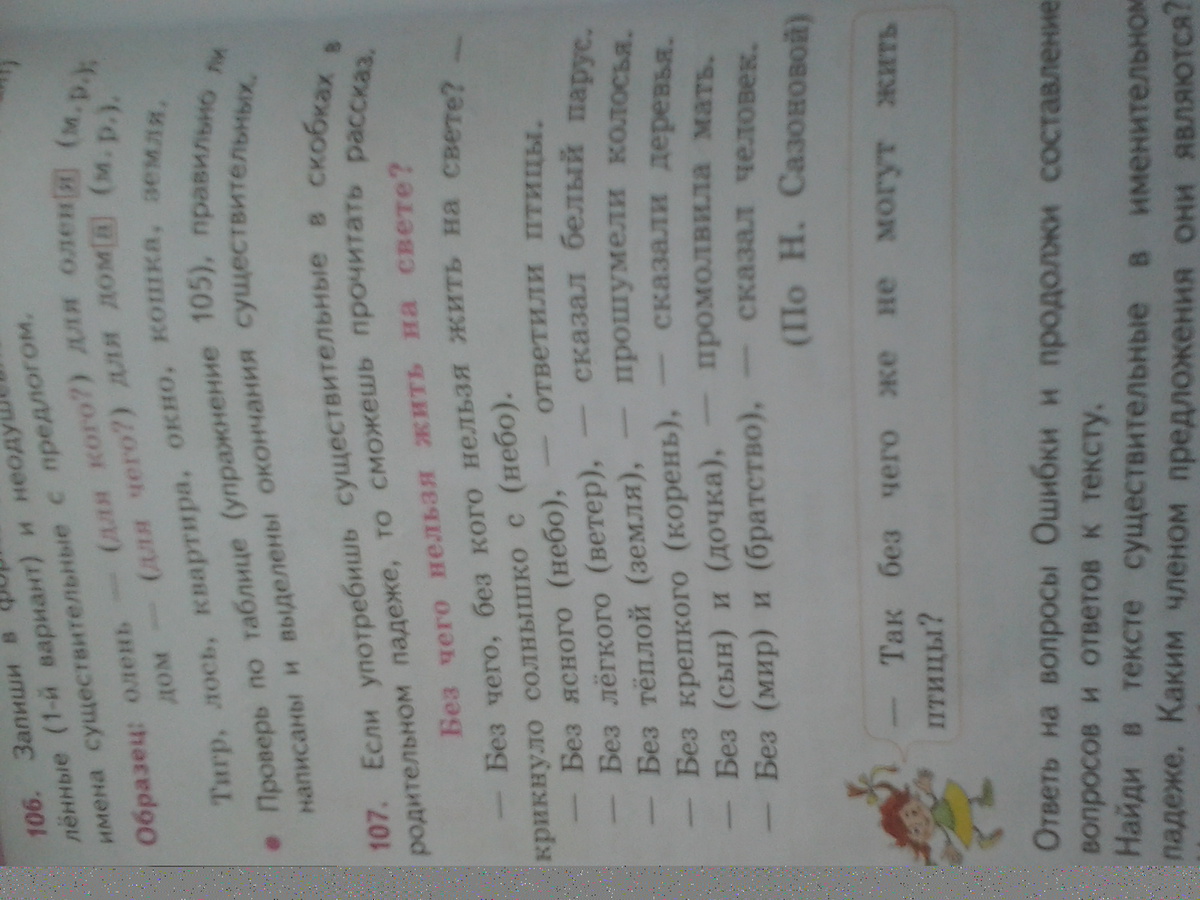 106. Запиши в
лённые (1-й вариант) и неодушев
имена существительные с предлогом.
Образец: олень — (для кого?) для оленя (м. р.);
дом — (для чего?) для дома (м. р.).
Тигр, лось, квартира, окно, кошка, земля.
• Проверь по таблице (упражнение 105), правильно ли
написаны и выделены окончания существительных.
107. Если употребишь существительные в скобках в
родительном падеже, то сможешь прочитать рассказ.
Без чего нельзя жить на свете?
— Без чего, без кого нельзя жить на свете? —
крикнуло солнышко с (небо).
— Без ясного (небо), — ответили птицы.
— Без лёгкого (ветер), — сказал белый парус.
— Без тёплой (земля), — прошумели колосья.
— Без крепкого (корень), — сказали деревья.
— Без (сын) и (дочка), — промолвила мать.
— Без (мир) и (братство), — сказал человек.
(По Н. Сазоновой)
— Так без чего же не могут жить
птицы?
Ответь на вопросы Ошибки и продолжи составление
вопросов и ответов к тексту.
Найди в тексте существительные в именительном
падеже. Каким членом предложения они являются?